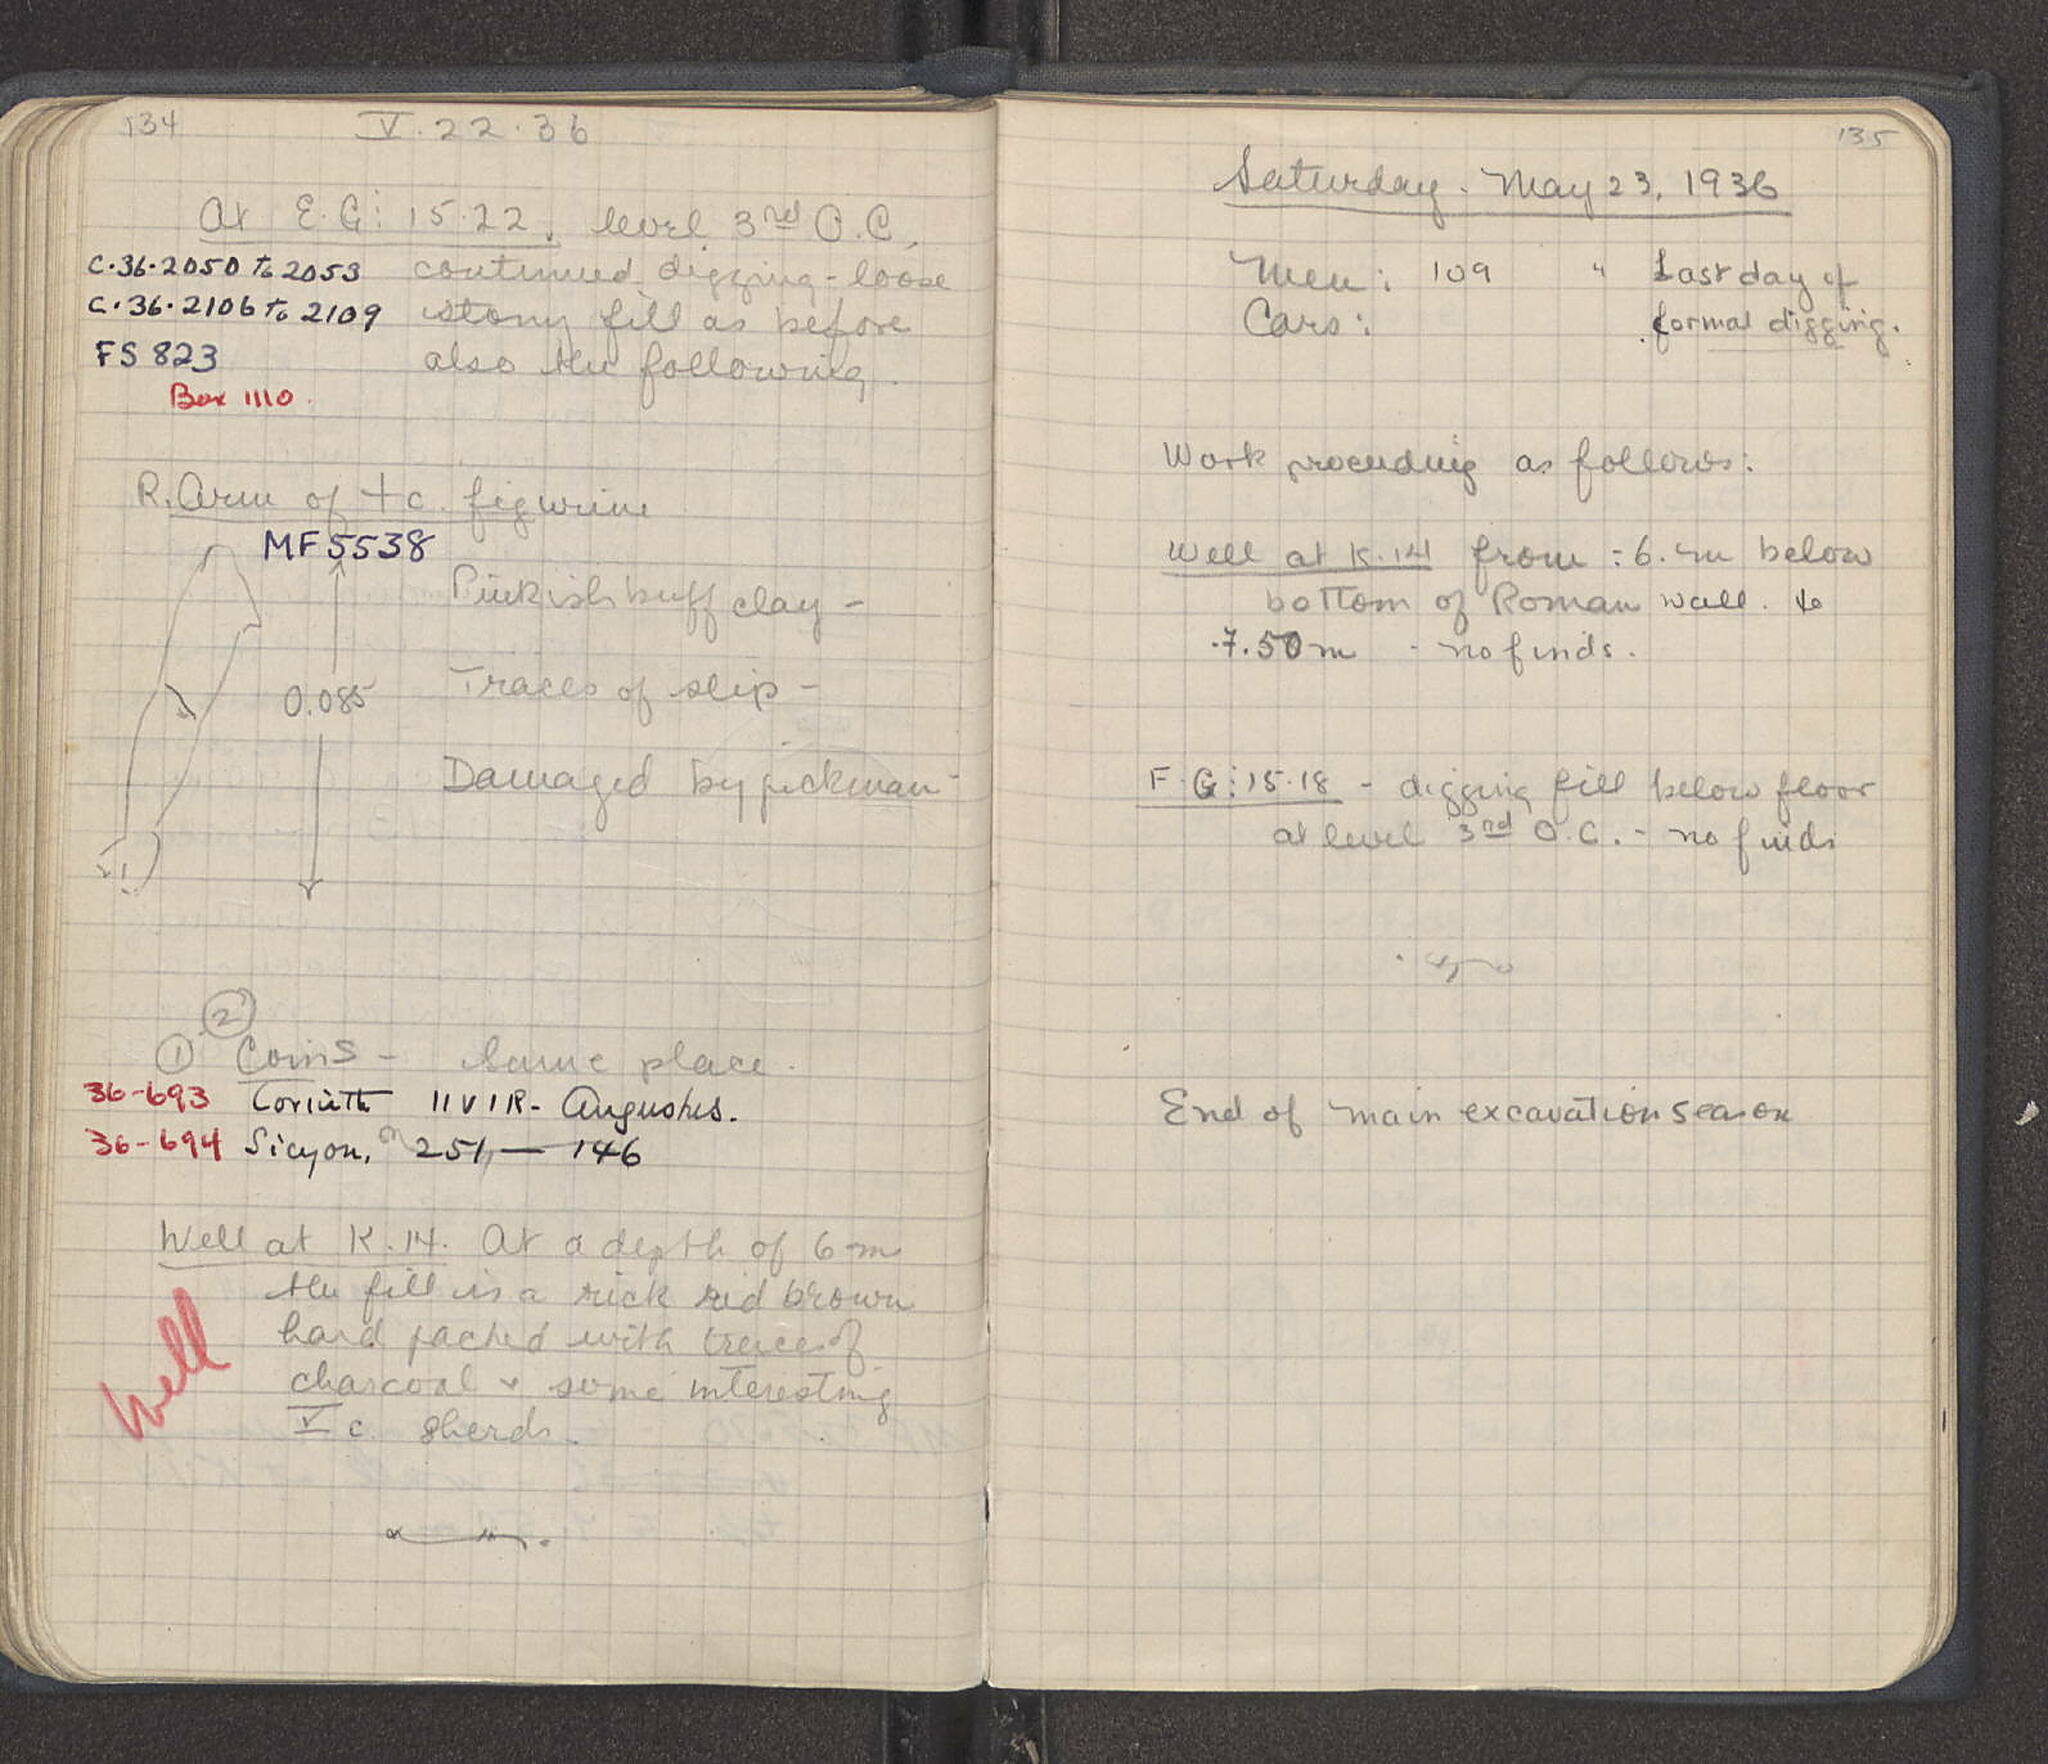 134
V.22.36
At E.G: 15.22, level 3rd O.C.
C.36.2050 to 2053 continued digging - loose
C.36.2106 to 2109 stony fill as before
FS 823 also the following.
Box 1110.
R. Arm of t.c. figurine
MF 5538
Pinkish buff clay -
0.085 Traces of slip -
Damaged by pickman -
2
1 Coins - Same place.
36-693 Corinth IIVIR - Augustus.
36-694 Sicyon, 251 — 146
Well at K.14. At a depth of 6 m
the fill is a rich red brown
hard packed with traces of
charcoal & some interesting
V c. sherds.
Well
135
Saturday - May 23, 1936
Men: 109 " Last day of
Cars: formal digging.
Work proceeding as follows:
Well at K.14 from : 6. m below
bottom of Roman wall. to
.7.50 m - no finds.
F.G: 15.18 - digging fill below floor
at level 3rd O.C. - no finds
End of main excavation season